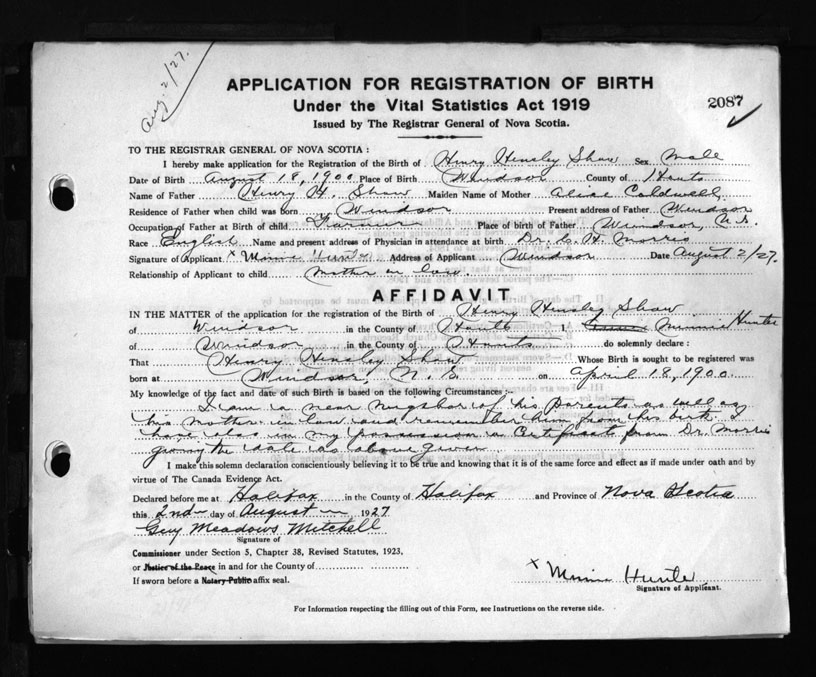 Aug. 2/27.
APPLICATION FOR REGISTRATION OF BIRTH
Under the Vital Statistics Act 1919
2087
Issued by The Registrar General of Nova Scotia.
TO THE REGISTRAR GENERAL OF NOVA SCOTIA :
I hereby make application for the Registration of the Birth of Henry Hensley Shaw Sex Male
Date of Birth August 18, 1900 Place of Birth Windsor County of Hants
Name of Father Henry H. Shaw Maiden Name of Mother Alice Caldwell
Residence of Father when child was born Windsor Present address of Father Windsor
Occupation of Father at Birth of child Farmer Place of birth of Father Windsor, N.S.
Race English Name and present address of Physician in attendance at birth Dr. Morris
Signature of Applicant x Minnie Hunter Address of Applicant Windsor Date August 2/27.
Relationship of Applicant to child Mother in law.
AFFIDAVIT
IN THE MATTER of the application for the registration of Birth of Henry Hensley Shaw
of Windsor in the County of Hants I, Minnie Hunter
of Windsor in the County of Hants do solemnly declare :
That Henry Hensley Shaw Whose Birth is sought to be registered was
born at Windsor, N.S. on April 18, 1900.
My knowledge of the fact and date of such Birth is based on the following Circumstances :-
I am a near neighbor of his parents as well as
his mother in law and remember him from his birth. I
have also in my possession a Certificate from Dr. Morris
giving the date as above given
I make this solemn declaration conscientiously believing it to be true and knowing that it is of same force and effect as if made under oath and by
virtue of The Canada Evidence Act.
Declared before me at Halifax in the County of Halifax and Province of Nova Scotia
this 2nd day of August 1927
Guy Meadows Mitchell
Signature of
Commissioner under Section 5, Chapter 38, Revised Statutes, 1923,
or Justice of the Peace in and for the County of
If sworn before a Notary Public affix seal.
x Minnie Hunter
Signature of Applicant.
For Information respecting the filling out of this Form, see Instructions on the reverse side.